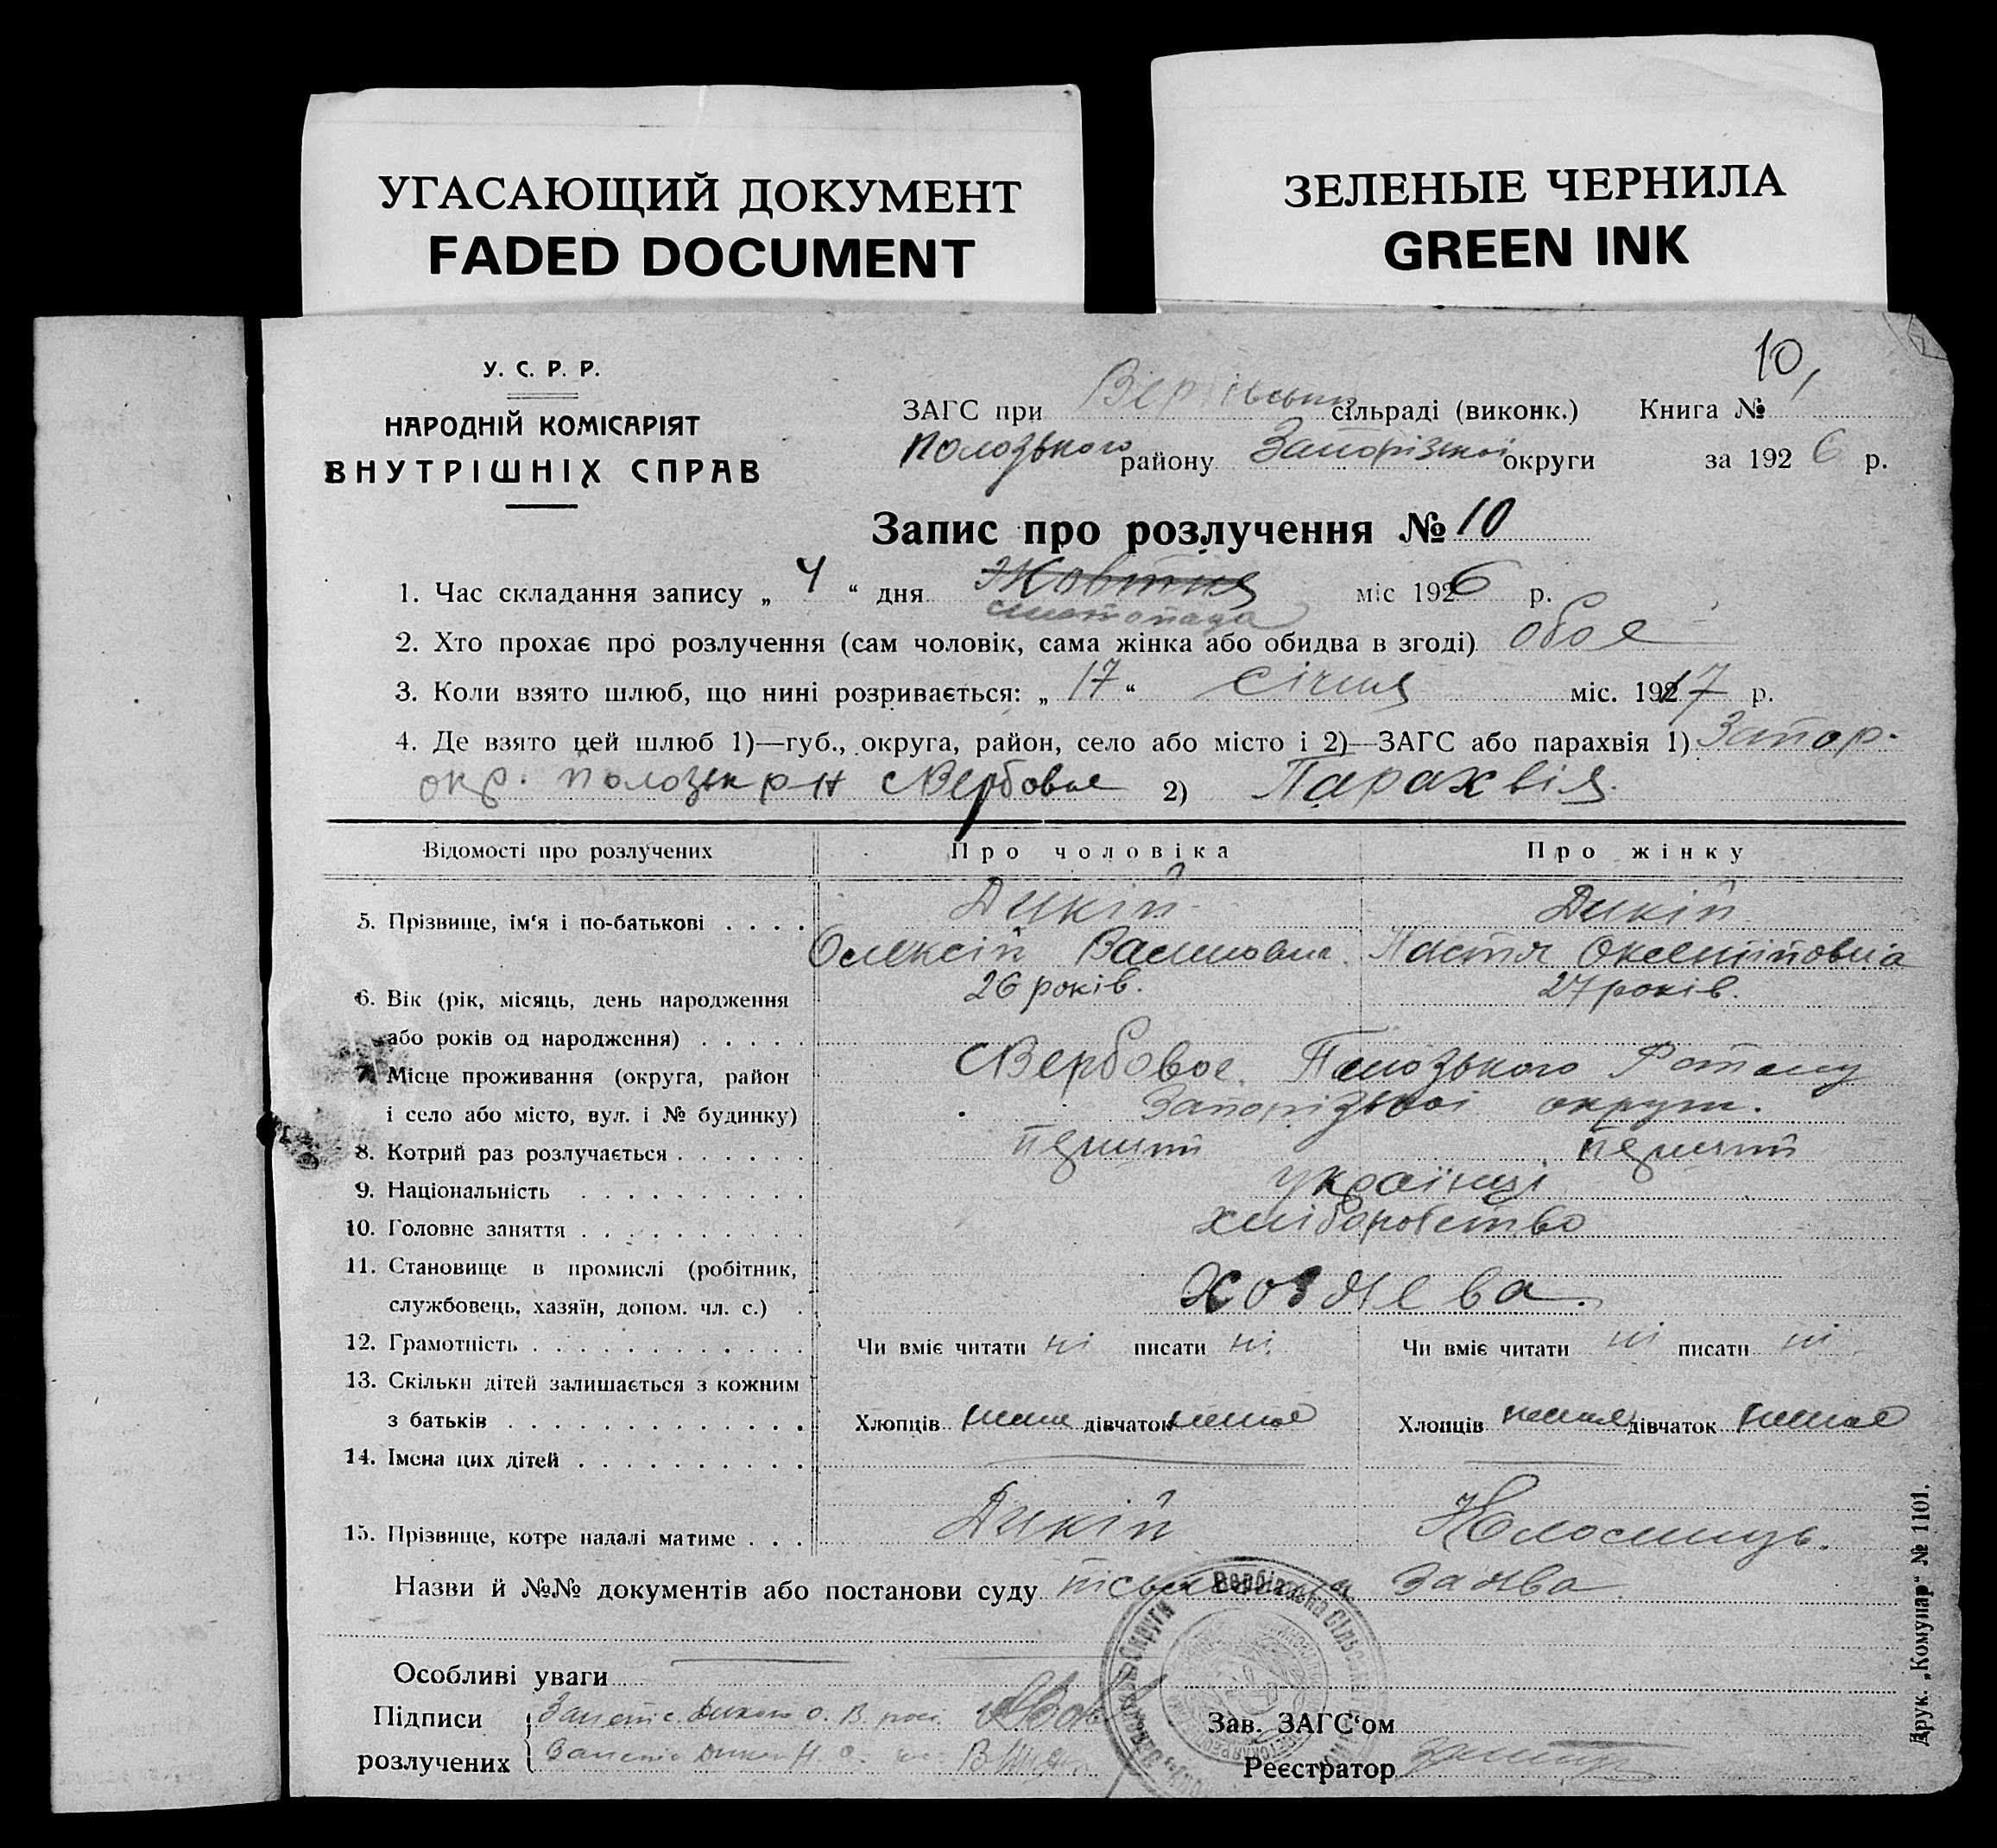 УГАСАЮЩИЙ ДОКУМЕНТ
FADED DOCUMENT
ЗЕЛЕНЫЕ ЧЕРНИЛА
GREEN INK
У. С. Р. Р.
НАРОДНІЙ КОМІСАРІЯТ
ВНУТРІШНІХ СПРАВ
10,
ЗАГС при сільраді (виконк.) Книга №
Полозького району Запорізької округи за 1926 р.
Запис про розлучення № 10
1. Час складання запису „ 4 “ дня Жовтня міс 1926 р.
листопада
2. Хто прохає про розлучення (сам чоловік, сама жінка або обидва в згоді) обоє
3. Коли взято шлюб, що нині розривається: „ 17 “ січня міс. 1917 р.
4. Де взято цей шлюб 1)—губ., округа, район, село або місто і 2)—ЗАГС або парахвія 1) Запор.
окр. Полозьк р-н с Вербовое 2) Парахвія.
Відомості про розлучених Про чоловіка Про жінку
Дикій Дикій
5. Прізвище, ім‘я і по-батькові . . . .
Олексій Настя
26 років. 27 років.
6. Вік (рік, місяць, день народження
або років од народження) . . . . .
с Вербовое. Полозького Району
7. Місце проживання (округа, район
Запорізької округи.
і село або місто, вул. і № будинку)
8. Котрий раз розлучається . . . . . . перший перший
9. Національність . . . . . . . . . . українці
10. Головне заняття . . . . . . . . . . хліборобство
11. Становище в промислі (робітник,
службовець, хазяїн, допом. чл. с.) . хозяева.
12. Грамотність . . . . . . . . . . . . Чи вміє читати ні писати ні Чи вміє читати ні писати ні
13. Скільки дітей залишається з кожним
з батьків . . . . . . . . . . . . . Хлопців немає дівчаток немає Хлопців немає дівчаток немає
14. Імена цих дітей . . . . . . . . . .
15. Прізвище, котре надалі матиме . . . Дикій
Назви й №№ документів або постанови суду заява
Особливі уваги
Підписи
Зав. ЗАГС‘ом
розлучених
Реєстратор
Друк. „Комунар“ № 1101.